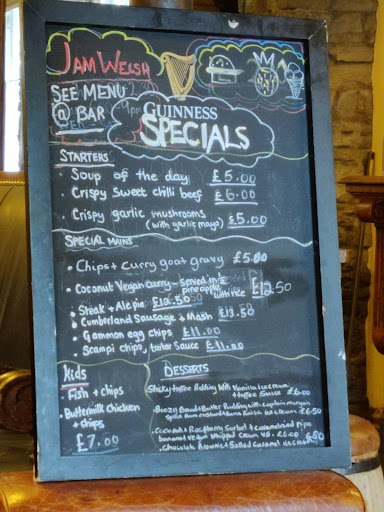 JAM WELSH
SEE MENU
@ BAR
9pm
GUINNESS
SPECIALS
STARTERS
• Soup of the day £5.00
• Crispy sweet chilli beef £6.00
• Crispy garlic mushrooms £5.00
(with garlic mayo)
SPECIAL MAINS
• Chips + curry goat gravy £5.00
• Coconut Vegan curry - served in ½
pineapple with rice £12.50
• Steak + Ale pie £12.50
• Cumberland Sausage + Mash £13.50
• Gammon egg chips £11.00
• Scampi chips, tartar sauce £11.00
Kids
• Fish + chips
• Buttermilk chicken
+ chips
£7.00
DESSERTS
Sticky toffee Pudding with Vanilla ice cream
+ toffee sauce £6.00
Boozy Bread + Butter Pudding with captain morgan
rum custard + rum raisin ice cream £6.50
Coconut + Raspberry Sorbet + caramelised
banana + vegan whipped cream VG. £6.00 6.50
chocolate Brownie + Salted Caramel